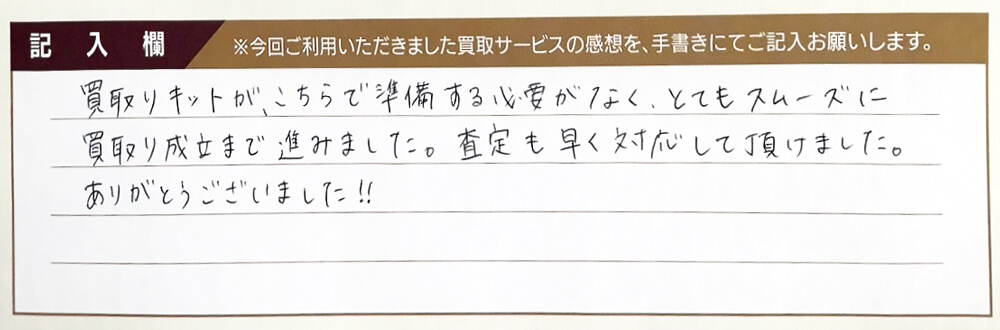 記入欄
※今回ご利用いただきました買取サービスの感想を、手書きにてご記入お願いします。
買取りキットが、こちらで準備する必要がなく、とてもスムーズに
買取り成立まで進みました。査定も早く対応して頂けました。
ありがとうございました!!